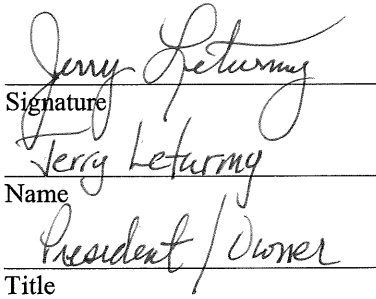 Jerry Leturmy
Signature
Jerry Leturmy
Name
President / Owner
Title